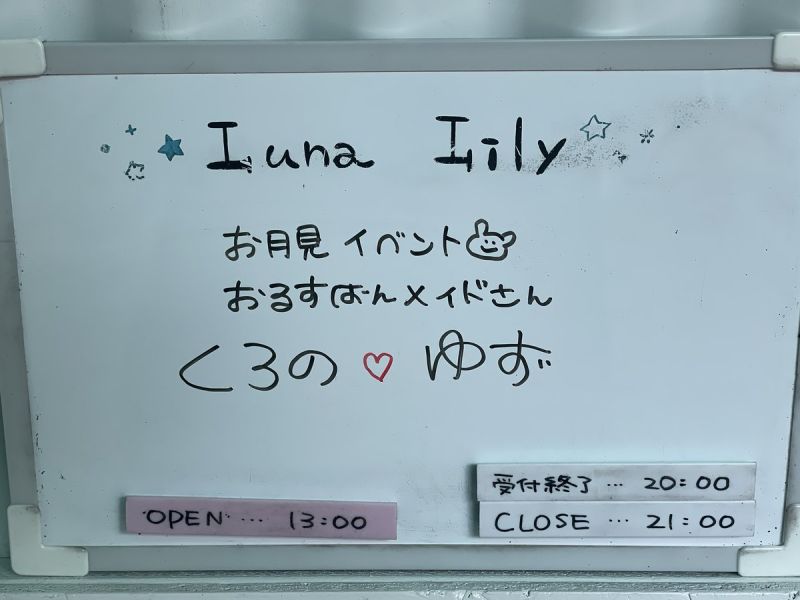 Luna Lily
お月見イベント
おるすばんメイドさん
くろの♡ゆず
受付終了… 20:00
OPEN… 13:00
CLOSE… 21:00